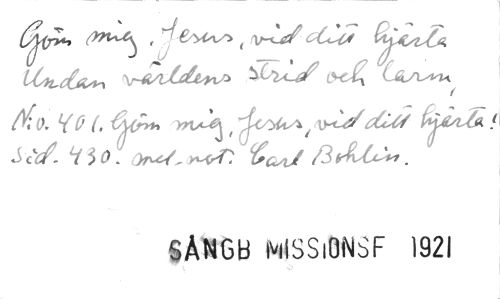 Göm mig, Jesus, vid ditt hjärta
Undan världens strid och larm,
N:o. 401. Göm mig, Jesus, vid ditt hjärta!
Sid. 430. mel. not: Carl Bohlin.
SÅNGB MISSIONSF 1921